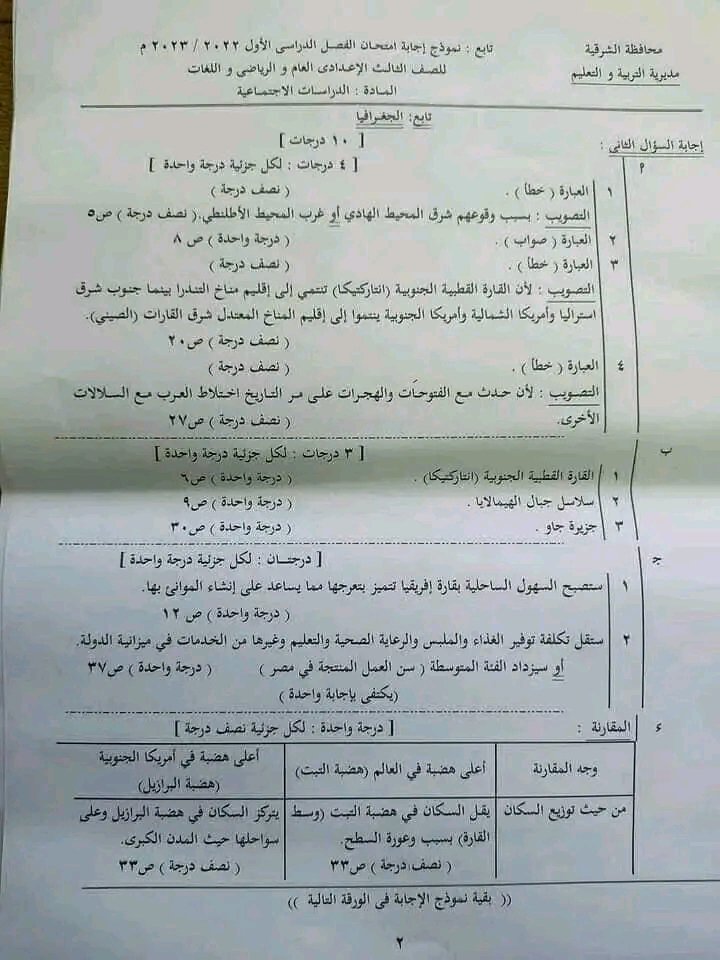 محافظة الشرقية
مديرية التربية و التعليم
تابع : نموذج إجابة امتحان الفصل الدراسى الأول ٢٠٢٢ / ٢٠٢٣ م
للصف الثالث الإعدادى العام و الرياضى و اللغات
المادة : الدراسات الاجتماعية
تابع: الجغرافيا
إجابة السؤال الثانى : [ ١٠ درجات ]
م [ ٤ درجات : لكل جزئية درجة واحدة ]
١ العبارة ( خطأ ) . ( نصف درجة )
التصويب : بسبب وقوعهم شرق المحيط الهادي أو غرب المحيط الأطلنطي.( نصف درجة ) ص٥
٢ العبارة ( صواب ) . ( درجة واحدة ) ص ٨
٣ العبارة ( خطأ ) . ( نصف درجة )
التصويب : لأن القارة القطبية الجنوبية (انتاركتيكا) تنتمي إلى إقليم مناخ التندرا بينما جنوب شرق
استراليا وأمريكا الشمالية وأمريكا الجنوبية ينتموا إلى إقليم المناخ المعتدل شرق القارات (الصيني).
( نصف درجة ) ص٢٠
٤ العبارة ( خطأ ) . ( نصف درجة )
التصويب : لأن حدث مع الفتوحات والهجرات على مر التاريخ اختلاط العرب مع السلالات
الأخرى. ( نصف درجة ) ص٢٧
ب [ ٣ درجات : لكل جزئية درجة واحدة ]
١ القارة القطبية الجنوبية (انتاركتيكا) . ( درجة واحدة ) ص٦
٢ سلاسل جبال الهيمالايا . ( درجة واحدة ) ص٩
٣ جزيرة جاو . ( درجة واحدة ) ص٣٠
جـ [ درجتـان : لكل جزئية درجة واحدة ]
١ ستصبح السهول الساحلية بقارة إفريقيا تتميز بتعرجها مما يساعد على إنشاء الموانئ بها.
( درجة واحدة ) ص ١٢
٢ ستقل تكلفة توفير الغذاء والملبس والرعاية الصحية والتعليم وغيرها من الخدمات في ميزانية الدولة.
أو سيزداد الفئة المتوسطة ( سن العمل المنتجة في مصر ) ( درجة واحدة ) ص٣٧
(يكتفى بإجابة واحدة )
ء المقارنة : [ درجة واحدة : لكل جزئية نصف درجة ]
وجه المقارنة
أعلى هضبة في العالم (هضبة التبت)
أعلى هضبة في أمريكا الجنوبية
(هضبة البرازيل)
من حيث توزيع السكان
يقل السكان في هضبة التبت (وسط
القارة) بسبب وعورة السطح.
( نصف درجة ) ص٣٣
يتركز السكان في هضبة البرازيل وعلى
سواحلها حيث المدن الكبرى.
( نصف درجة ) ص٣٣
(( بقية نموذج الإجابة فى الورقة التالية ))
٢